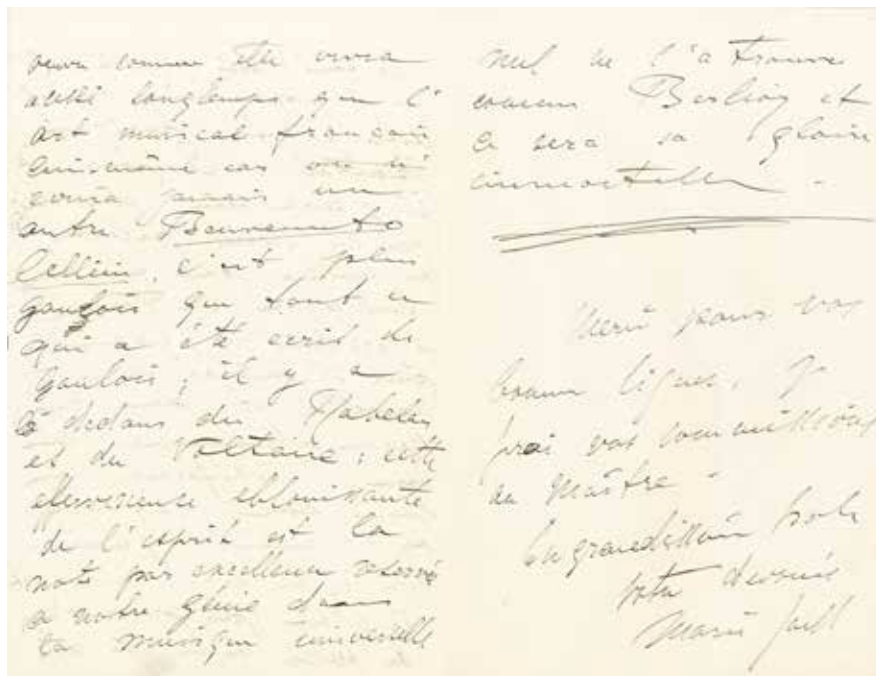 œuvre comme elle vivra
aussi longtemps que l'
art musical français
lui-même car on n'
écrira jamais un
autre Benvenuto
Cellini, c'est plus
gaulois que tout ce
qui a été écrit de
gaulois ; il y a
là dedans du Rabelais
et du Voltaire ; cette
effervescence éblouissante
de l'esprit est la
note par excellence réservée
à notre génie dans
la musique universelle
nul ne l'a trouvée
comme Berlioz et
ce sera sa gloire
immortelle.
Merci pour vos
bonnes lignes. Je
ferai vos commissions
au Maître.
votre dévouée
Marie Jaëll